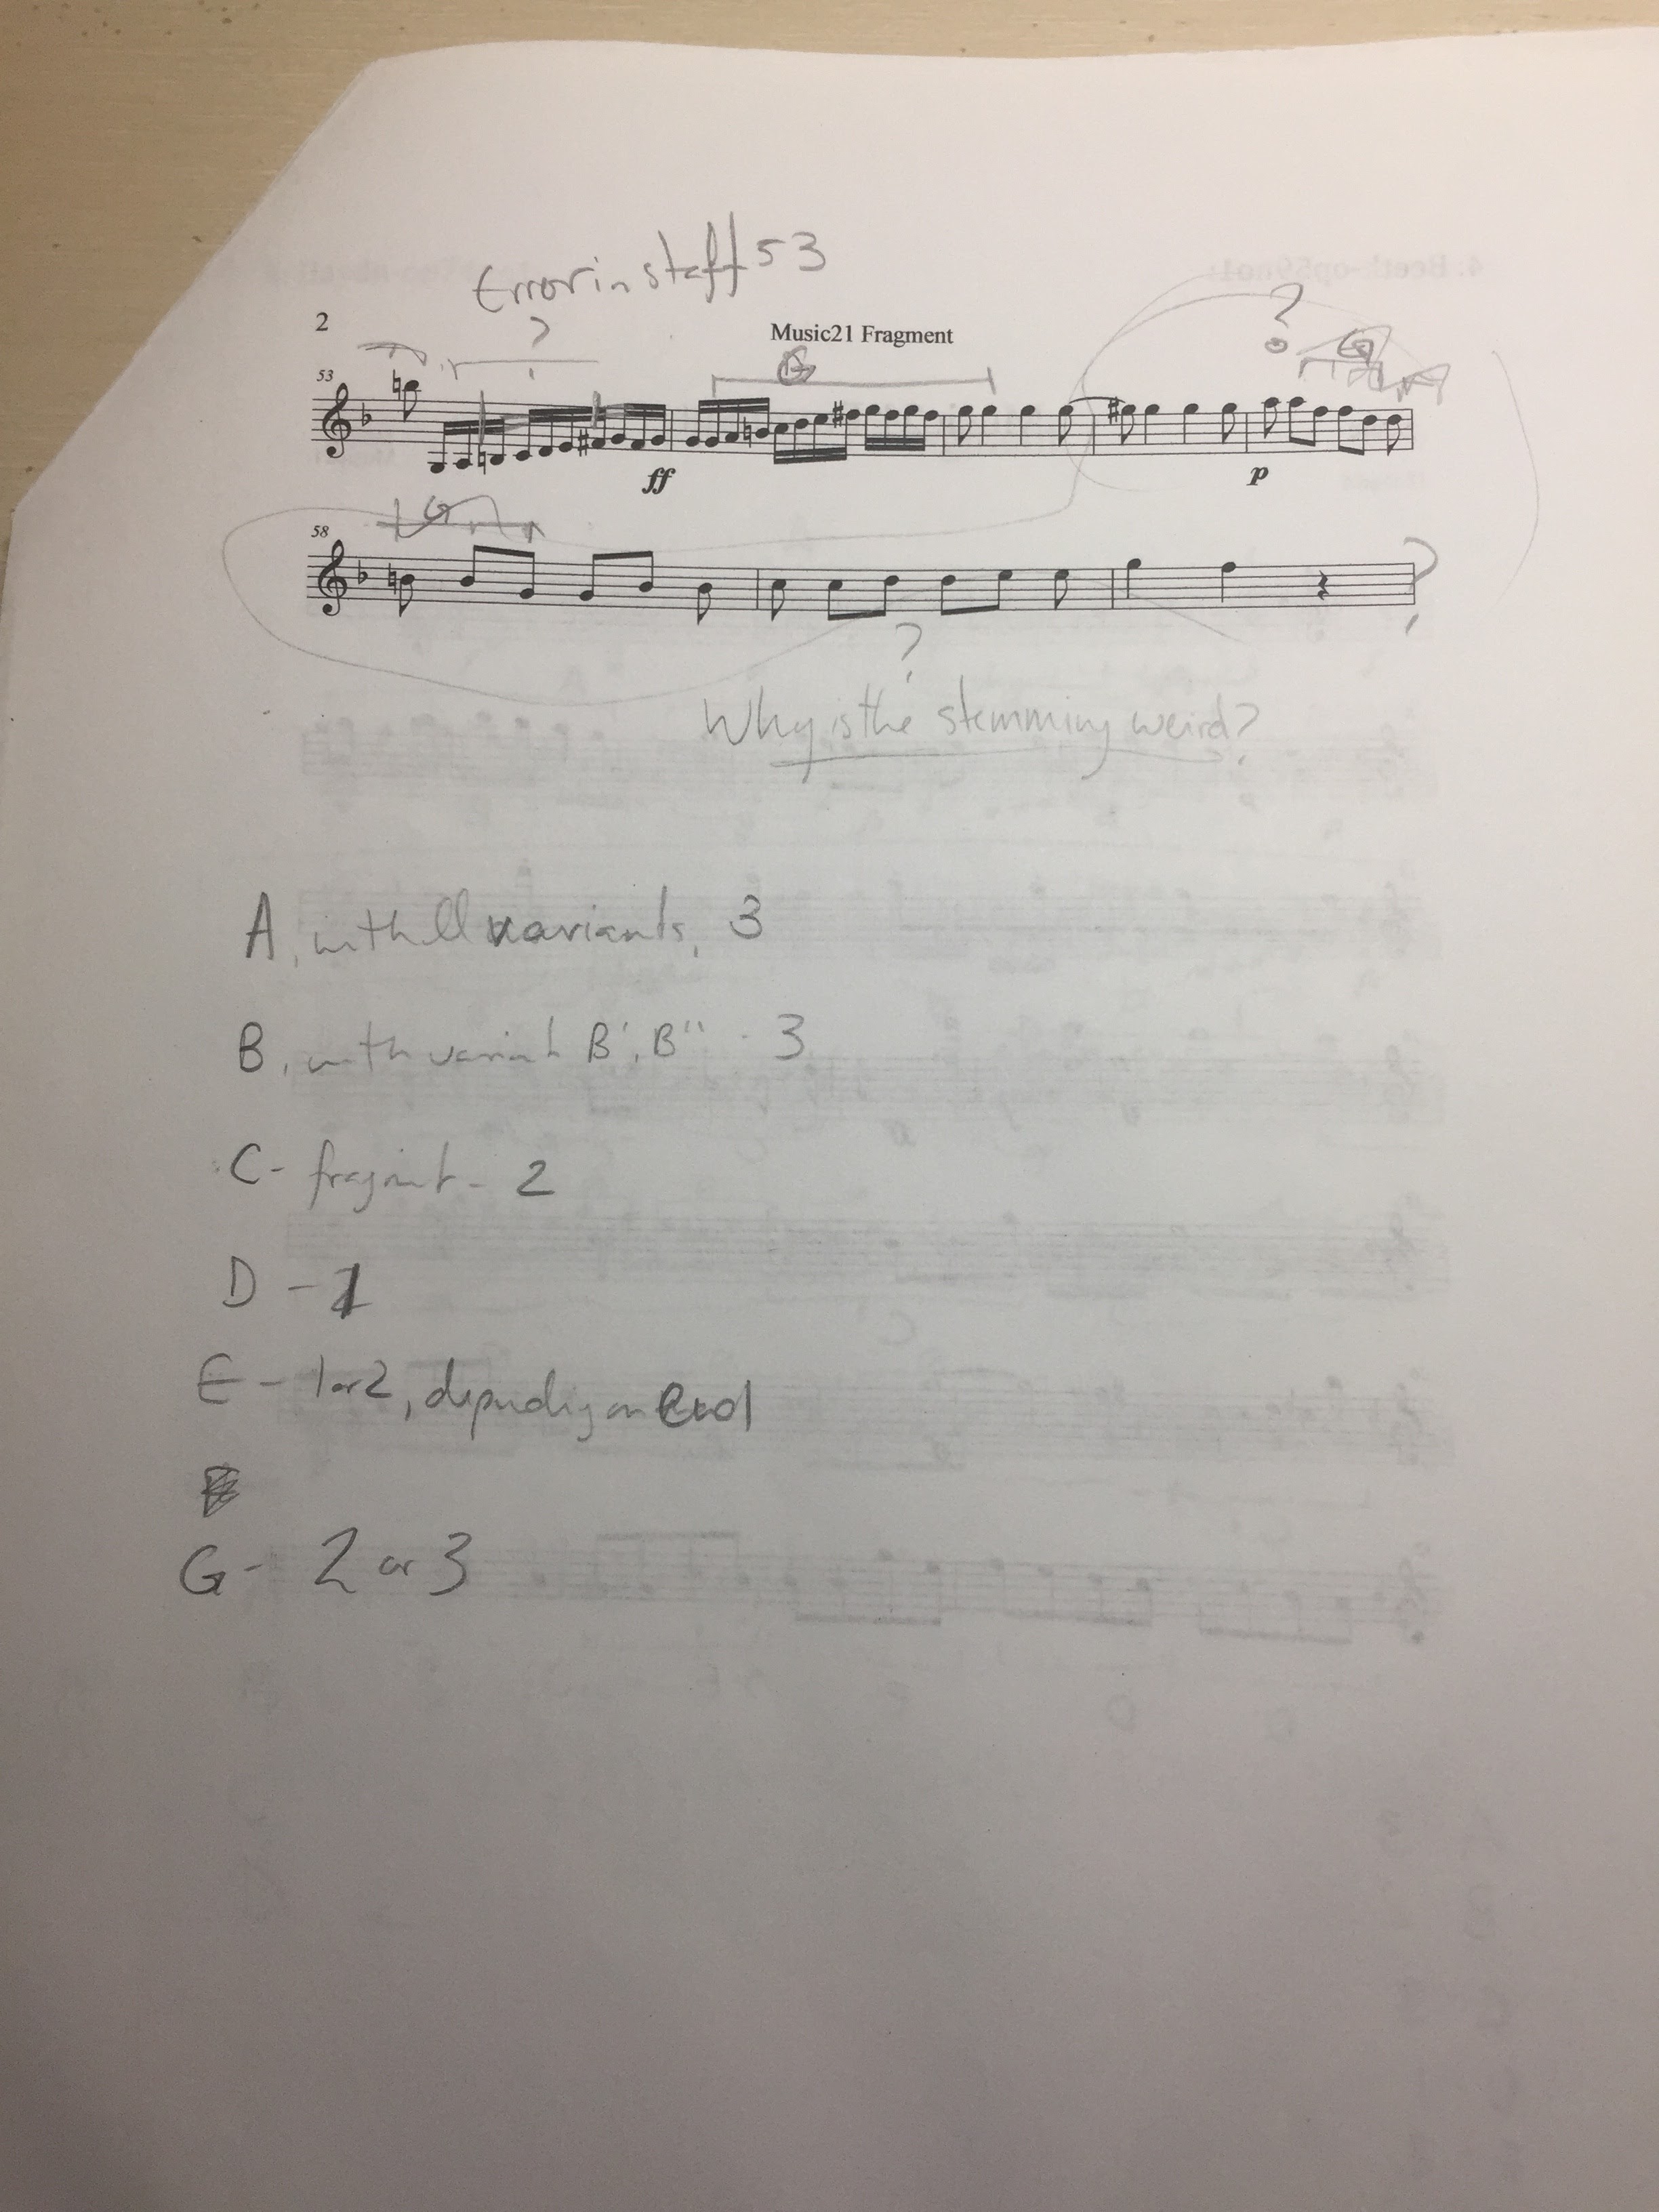 Error in staff 53
2
?
?
Music21 Fragment
G
G
53
ff
p
G
58
?
?
Why is the stemming weird?
A, with all variants, 3
B, with variant B', B'' - 3
C- fragment - 2
D - 1
E - 1 or 2, depending on end
G - 2 or 3